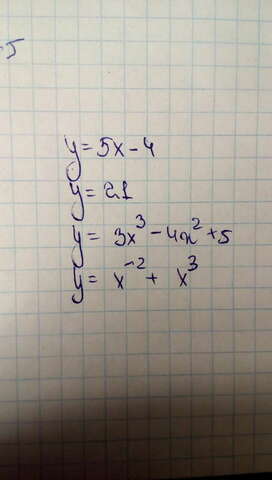 5
y = 5x - 4
y = 21
y = 3x³ - 4x² + 5
y = x⁻² + x³